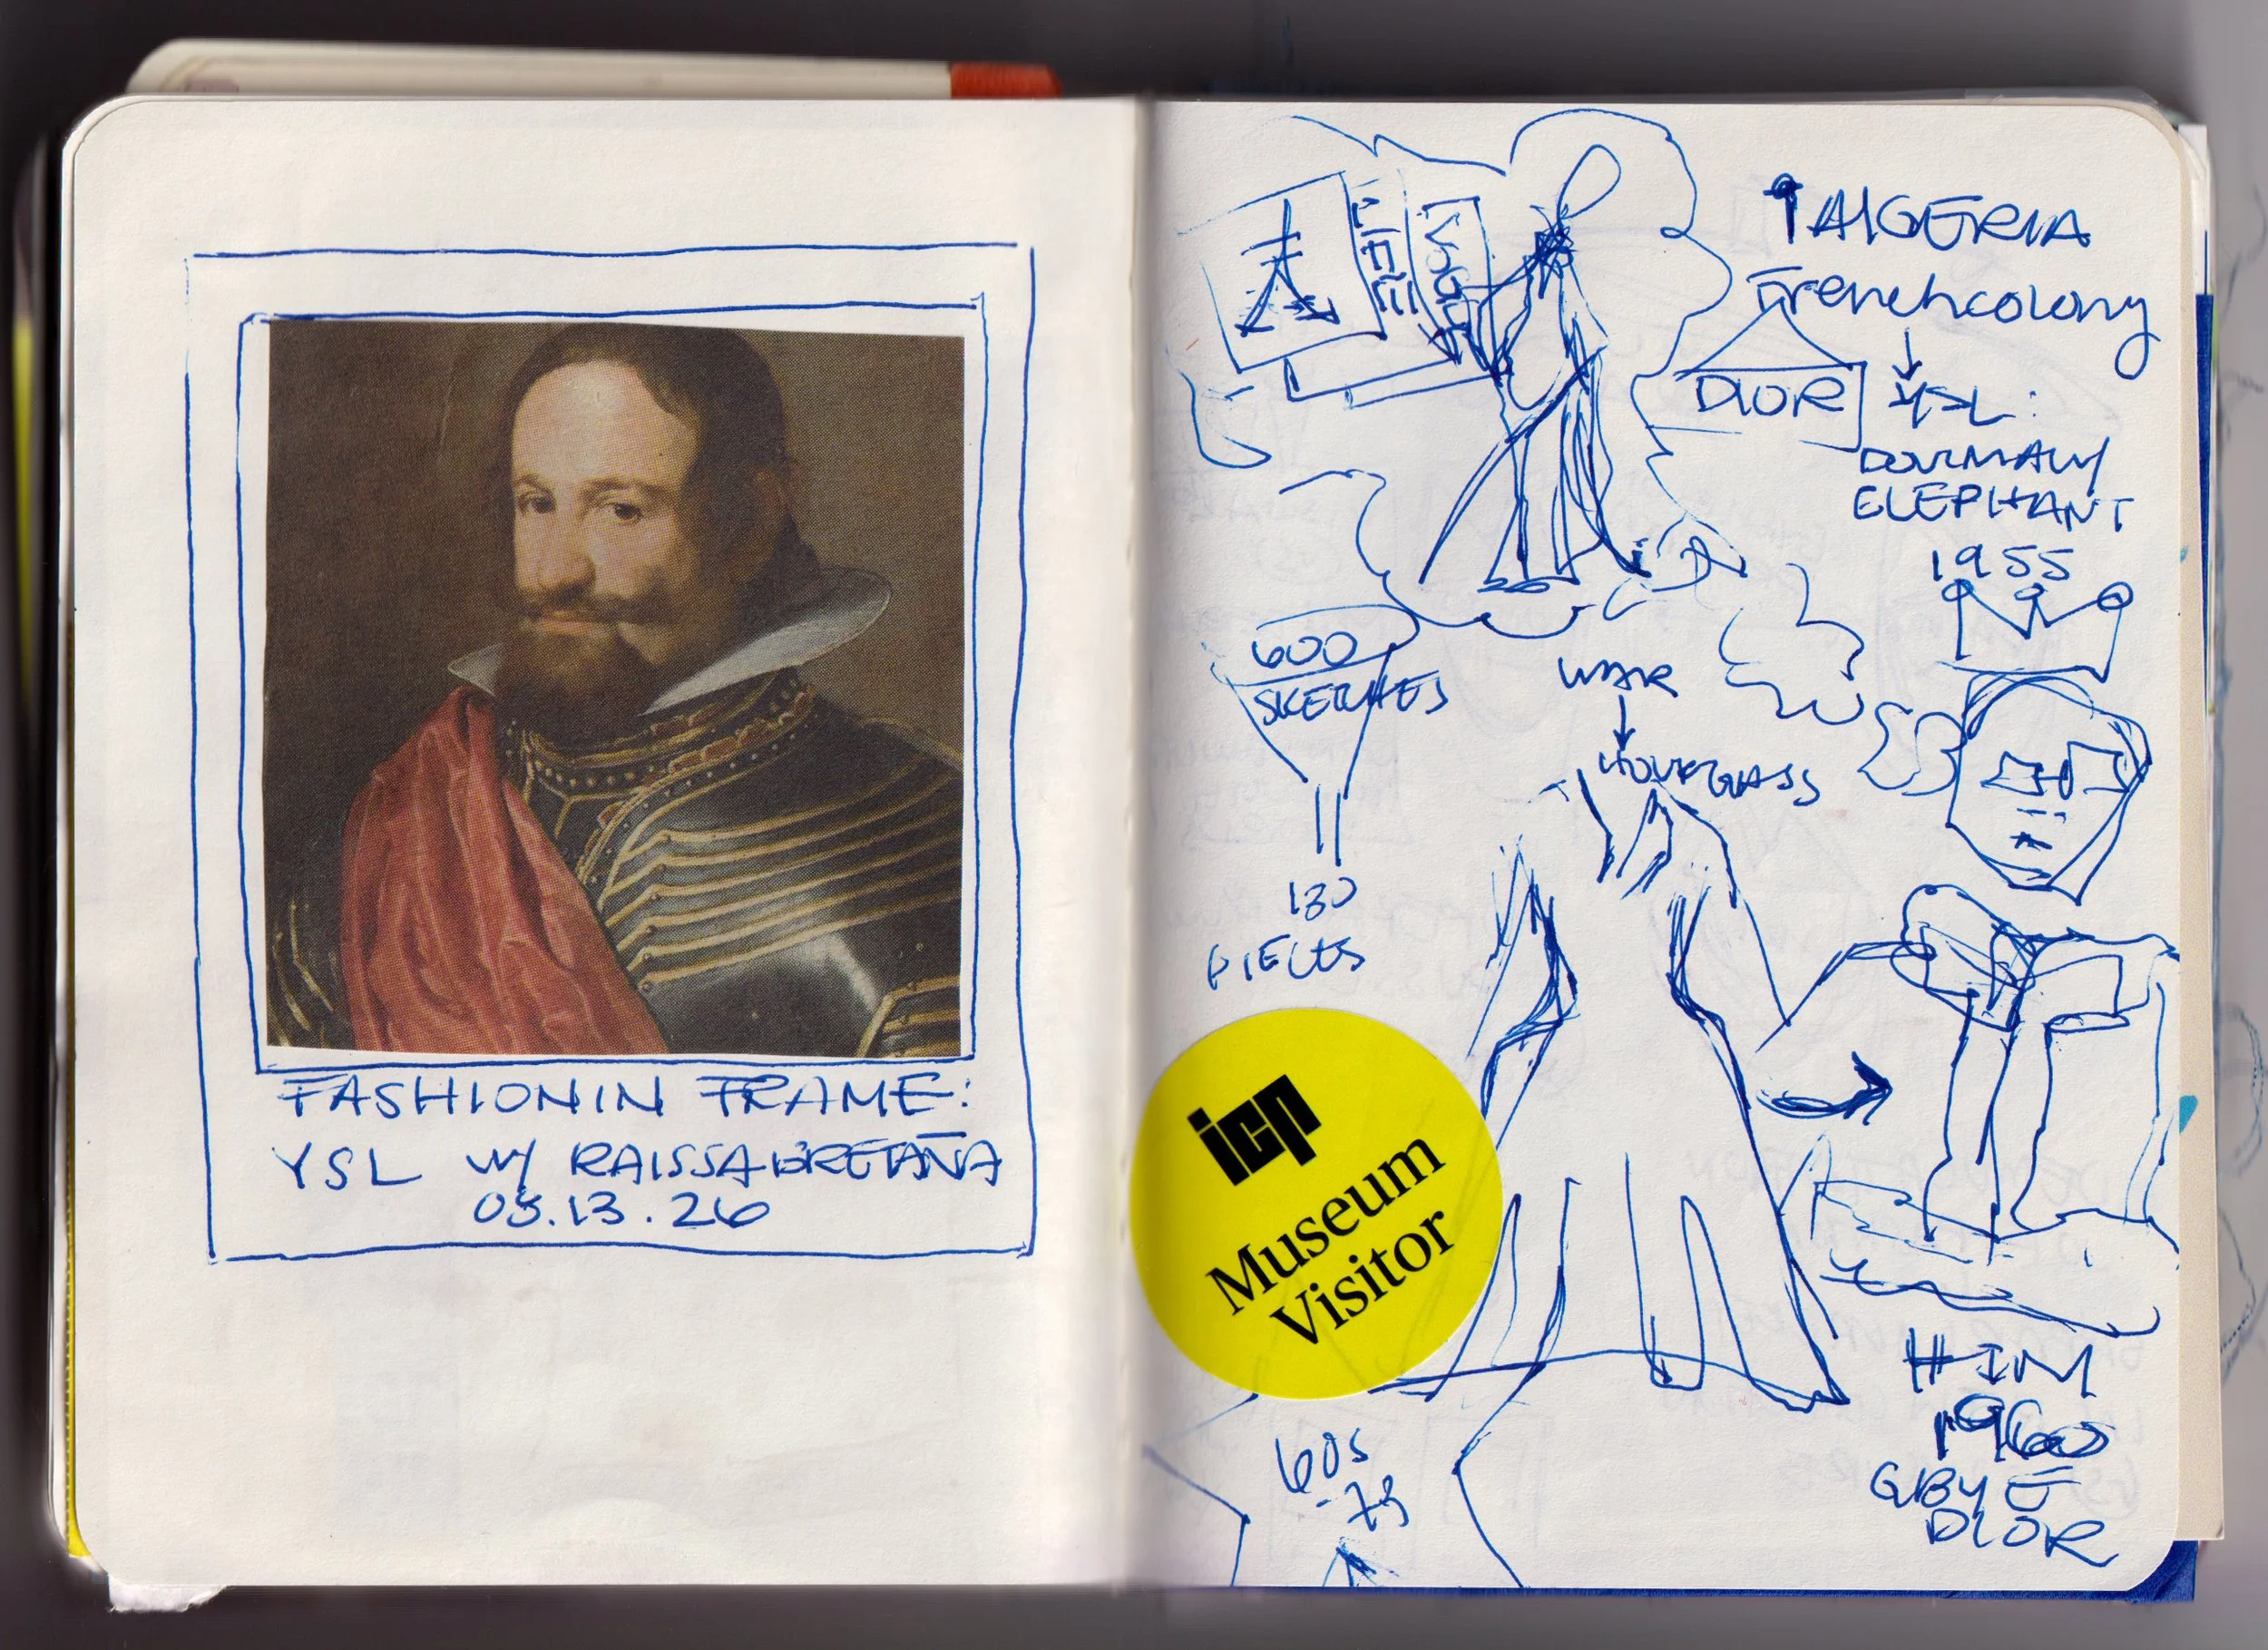 FASHION IN FRAME:
YSL W/ RAISSA BRETAÑA
03.13.26
LIFE
VOGUE
ALGERIA
French colony
DIOR
YSL:
ELEPHANT
1955
600
SKETCHES
WAR
HOURGLASS
130
PIECES
icp
Museum
Visitor
HIM
1960
DIOR
60s